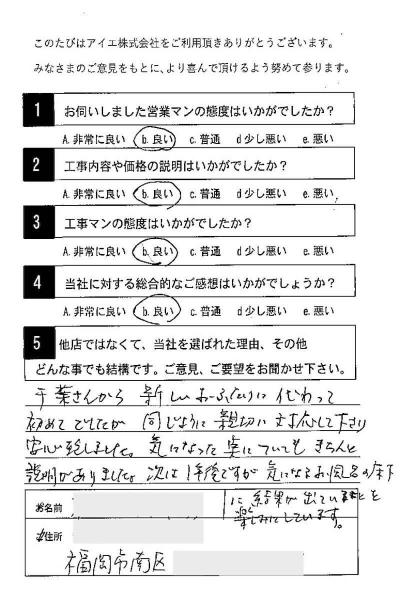 このたびはアイエ株式会社をご利用頂きありがとうございます。
みなさまのご意見をもとに、より喜んで頂けるよう努めて参ります。
1 お伺いしました営業マンの態度はいかがでしたか?
A. 非常に良い b. 良い c. 普通 d 少し悪い e. 悪い
2 工事内容や価格の説明はいかがでしたか?
A. 非常に良い b. 良い c. 普通 d 少し悪い e. 悪い
3 工事マンの態度はいかがでしたか?
A. 非常に良い b. 良い c. 普通 d 少し悪い e. 悪い
4 当社に対する総合的なご感想はいかがでしょうか?
A. 非常に良い b. 良い c. 普通 d 少し悪い e. 悪い
5 他店ではなくて、当社を選ばれた理由、その他
どんな事でも結構です。ご意見、ご要望をお聞かせ下さい。
千葉さんから 新しい に代わって
初めてでしたが 同じように 親切に 対応して下さり
安心 しました。気になった 事についても きちんと
説明がありました。次は1年後ですが 気になるお風呂の床下
に 結果が出ていることを
楽しみにしています。
お名前
ご住所
福岡市南区